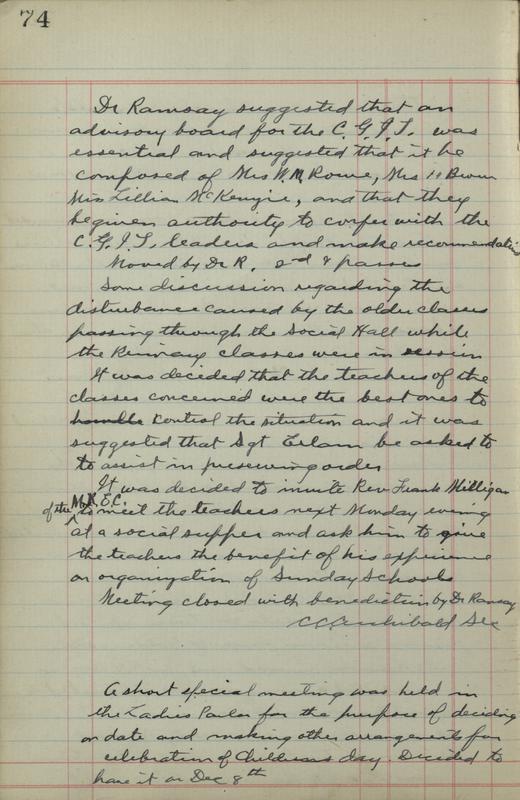 74
Dr Ramsay suggested that an
advisory board for the C.G.I.T. was
essential and suggested that it be
composed of Mrs W.M. Rowe, Mrs H Brown
Miss Lillian McKenzie, and that they
be given authority to confer with the
C.G.I.T. leaders and make recommendations
Moved by Dr R. 2nd & passes
Some discussion regarding the
disturbance caused by the older classes
passing through the Social Hall while
the Primary classes were in session
It was decided that the teachers of the
classes concerned were the best ones to
handle control the situation and it was
suggested that Sgt be asked to
to assist in preserving order
It was decided to invite Rev Frank Milligan
of the M.R.E.C. to meet the teachers next Monday evening
at a social supper and ask him to give
the teachers the benefit of his experience
on organization of Sunday Schools
Meeting closed with benediction by Dr Ramsay
CC Archibald Sec
A short special meeting was held in
the Ladies Parlor for the purpose of deciding
on date and making other arrangements for
celebration of Childrens day. Decided to
have it on Dec 8th